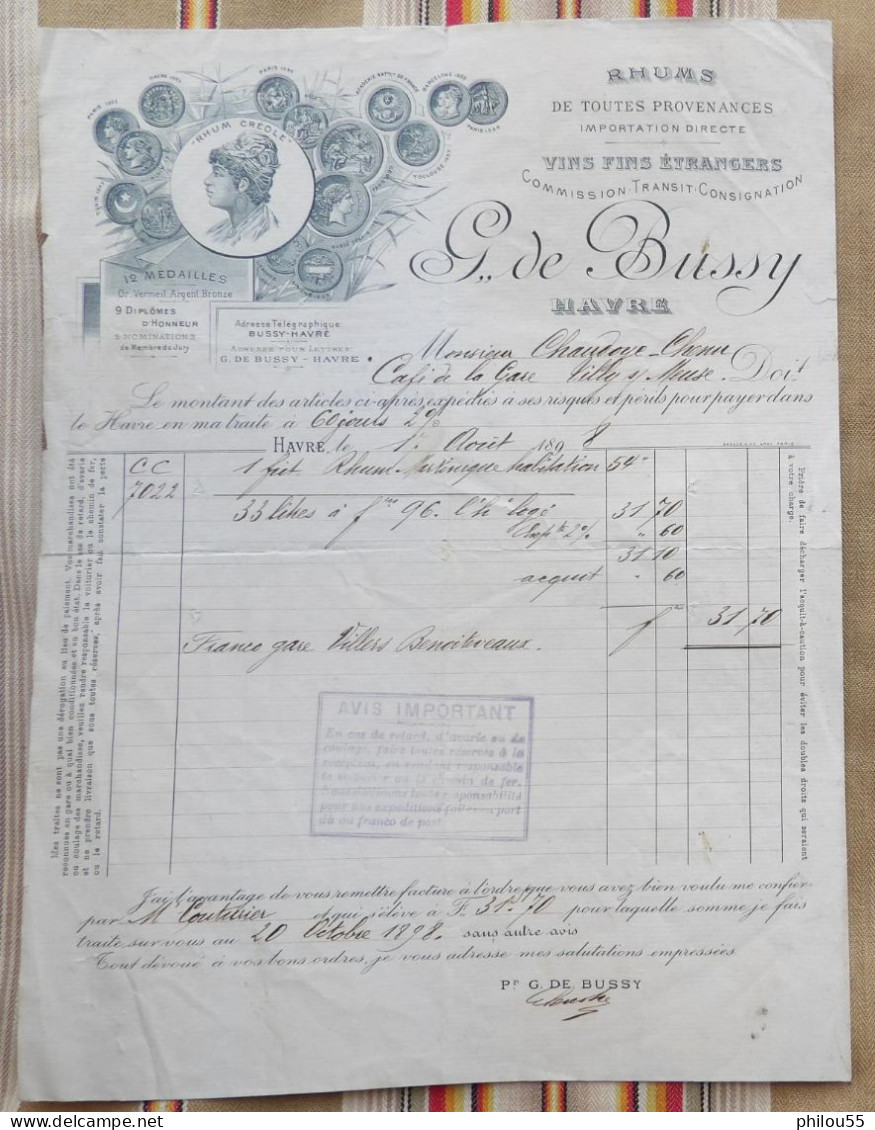 RHUMS
DE TOUTES PROVENANCES
IMPORTATION DIRECTE
VINS FINS ÉTRANGERS
COMMISSION · TRANSIT · CONSIGNATION
G. de Bussy
HAVRE
"RHUM CREOLE"
PARIS 1885
BARCELONE 1888
12 MÉDAILLES
Or. Vermeil. Argent. Bronze
9 DIPLÔMES
D'HONNEUR
NOMINATIONS
de Membre du Jury
Adresse Télégraphique
BUSSY-HAVRE
ADRESSE POUR LETTRES
G. DE BUSSY - HAVRE
Monsieur Chaudoye-
Café de la Gare s/ Meuse. Doit
Le montant des articles ci-après, expédiés à ses risques et périls pour payer dans
le Havre en ma traite à 60 jours 2%
HAVRE, le 1r Août 1898
CC 1 fût Rhum Martinique habitation 54°
7022
33 litres à f 96. l'h logé 31 70
2% " 60
31 10
acquit " 60
f 31 70
Franco gare Villers
Mes traites ne sont pas une dérogation au lieu de paiement. Vos marchandises ont été
reconnues en gare ou à quai bien conditionnées et en bon état. Dans le cas de retard, d'avarie
ou coulage des marchandises, veuillez rendre responsable le voiturier ou le chemin de fer,
et ne prendre livraison que sous toutes réserves, après avoir fait constater la perte
ou le retard.
Prière de faire décharger l'acquit-à-caution pour éviter les doubles droits qui seraient
à votre charge.
AVIS IMPORTANT
En cas de retard, d'avarie ou de
coulage, faire toutes réserves à la
réception, en rendant responsable
le voiturier ou le chemin de fer.
toute responsabilité
pour nos expéditions faites en port
dû ou franco de port
J'ai l'avantage de vous remettre facture à l'ordre que vous avez bien voulu me confier
par M Couturier et qui s'élève à F. 31.70 pour laquelle somme je fais
traite sur vous au 20 Octobre 1898. sans autre avis
Tout dévoué à vos bons ordres, je vous adresse mes salutations empressées.
Pr G. DE BUSSY
philou55